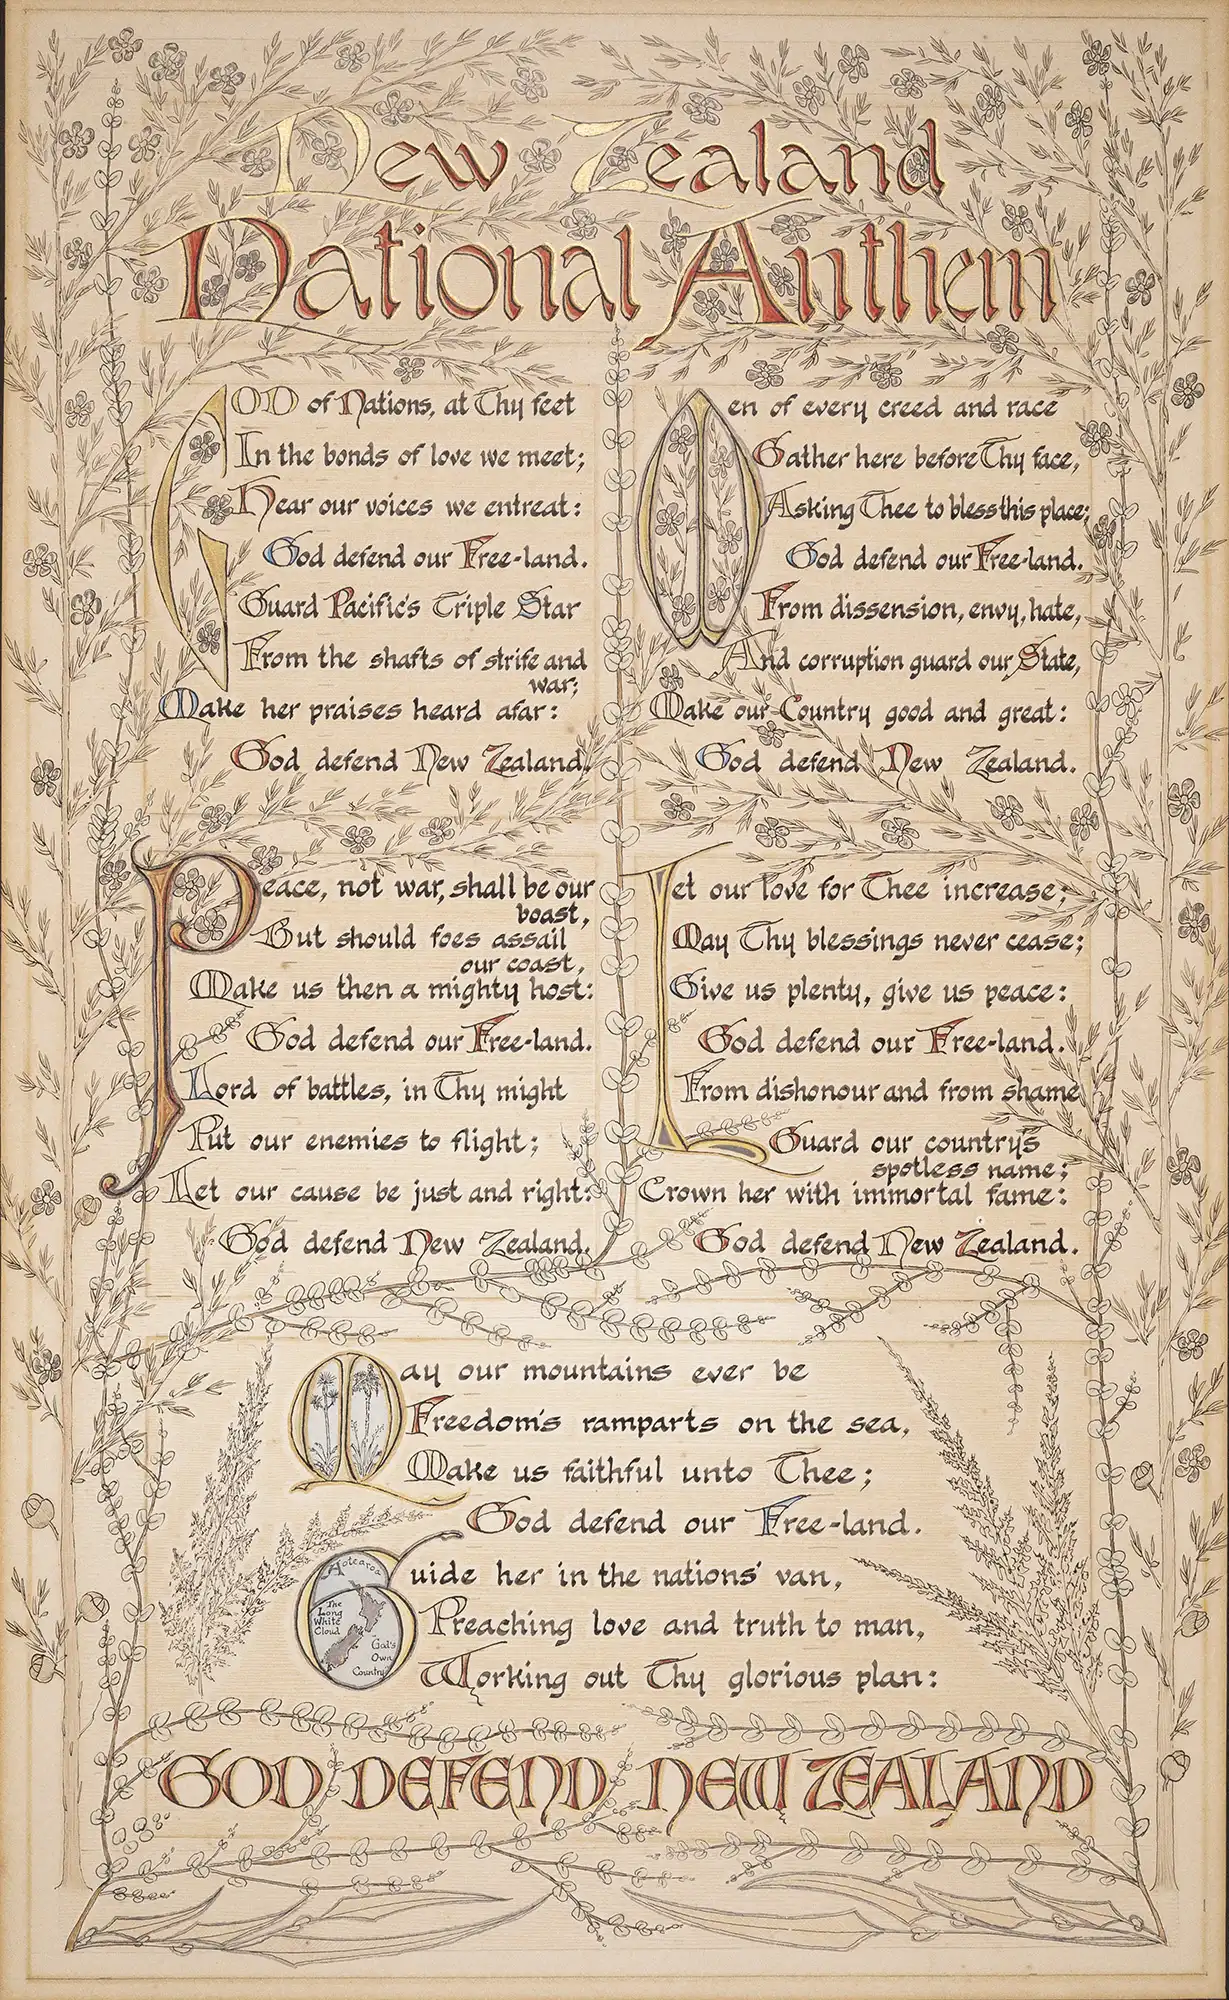 New Zealand
National Anthem
GOD of Nations, at Thy feet
In the bonds of love we meet;
Hear our voices we entreat:
God defend our Free-land.
Guard Pacific's Triple Star
From the shafts of strife and
war;
Make her praises heard afar:
God defend New Zealand.
Men of every creed and race
Gather here before Thy face,
Asking Thee to bless this place;
God defend our Free-land.
From dissension, envy, hate,
And corruption guard our State,
Make our Country good and great:
God defend New Zealand.
Peace, not war, shall be our
boast,
But should foes assail
our coast,
Make us then a mighty host:
God defend our Free-land.
Lord of battles, in Thy might
Put our enemies to flight;
Let our cause be just and right:
God defend New Zealand.
Let our love for Thee increase;
May Thy blessings never cease;
Give us plenty, give us peace:
God defend our Free-land.
From dishonour and from shame
Guard our country's
spotless name;
Crown her with immortal fame:
God defend New Zealand.
May our mountains ever be
Freedom's ramparts on the sea,
Make us faithful unto Thee;
God defend our Free-land.
Guide her in the nations' van,
Preaching love and truth to man,
Working out Thy glorious plan:
Aotearoa
The
Long
White
Cloud
God's
Own
Country
GOD DEFEND NEW ZEALAND